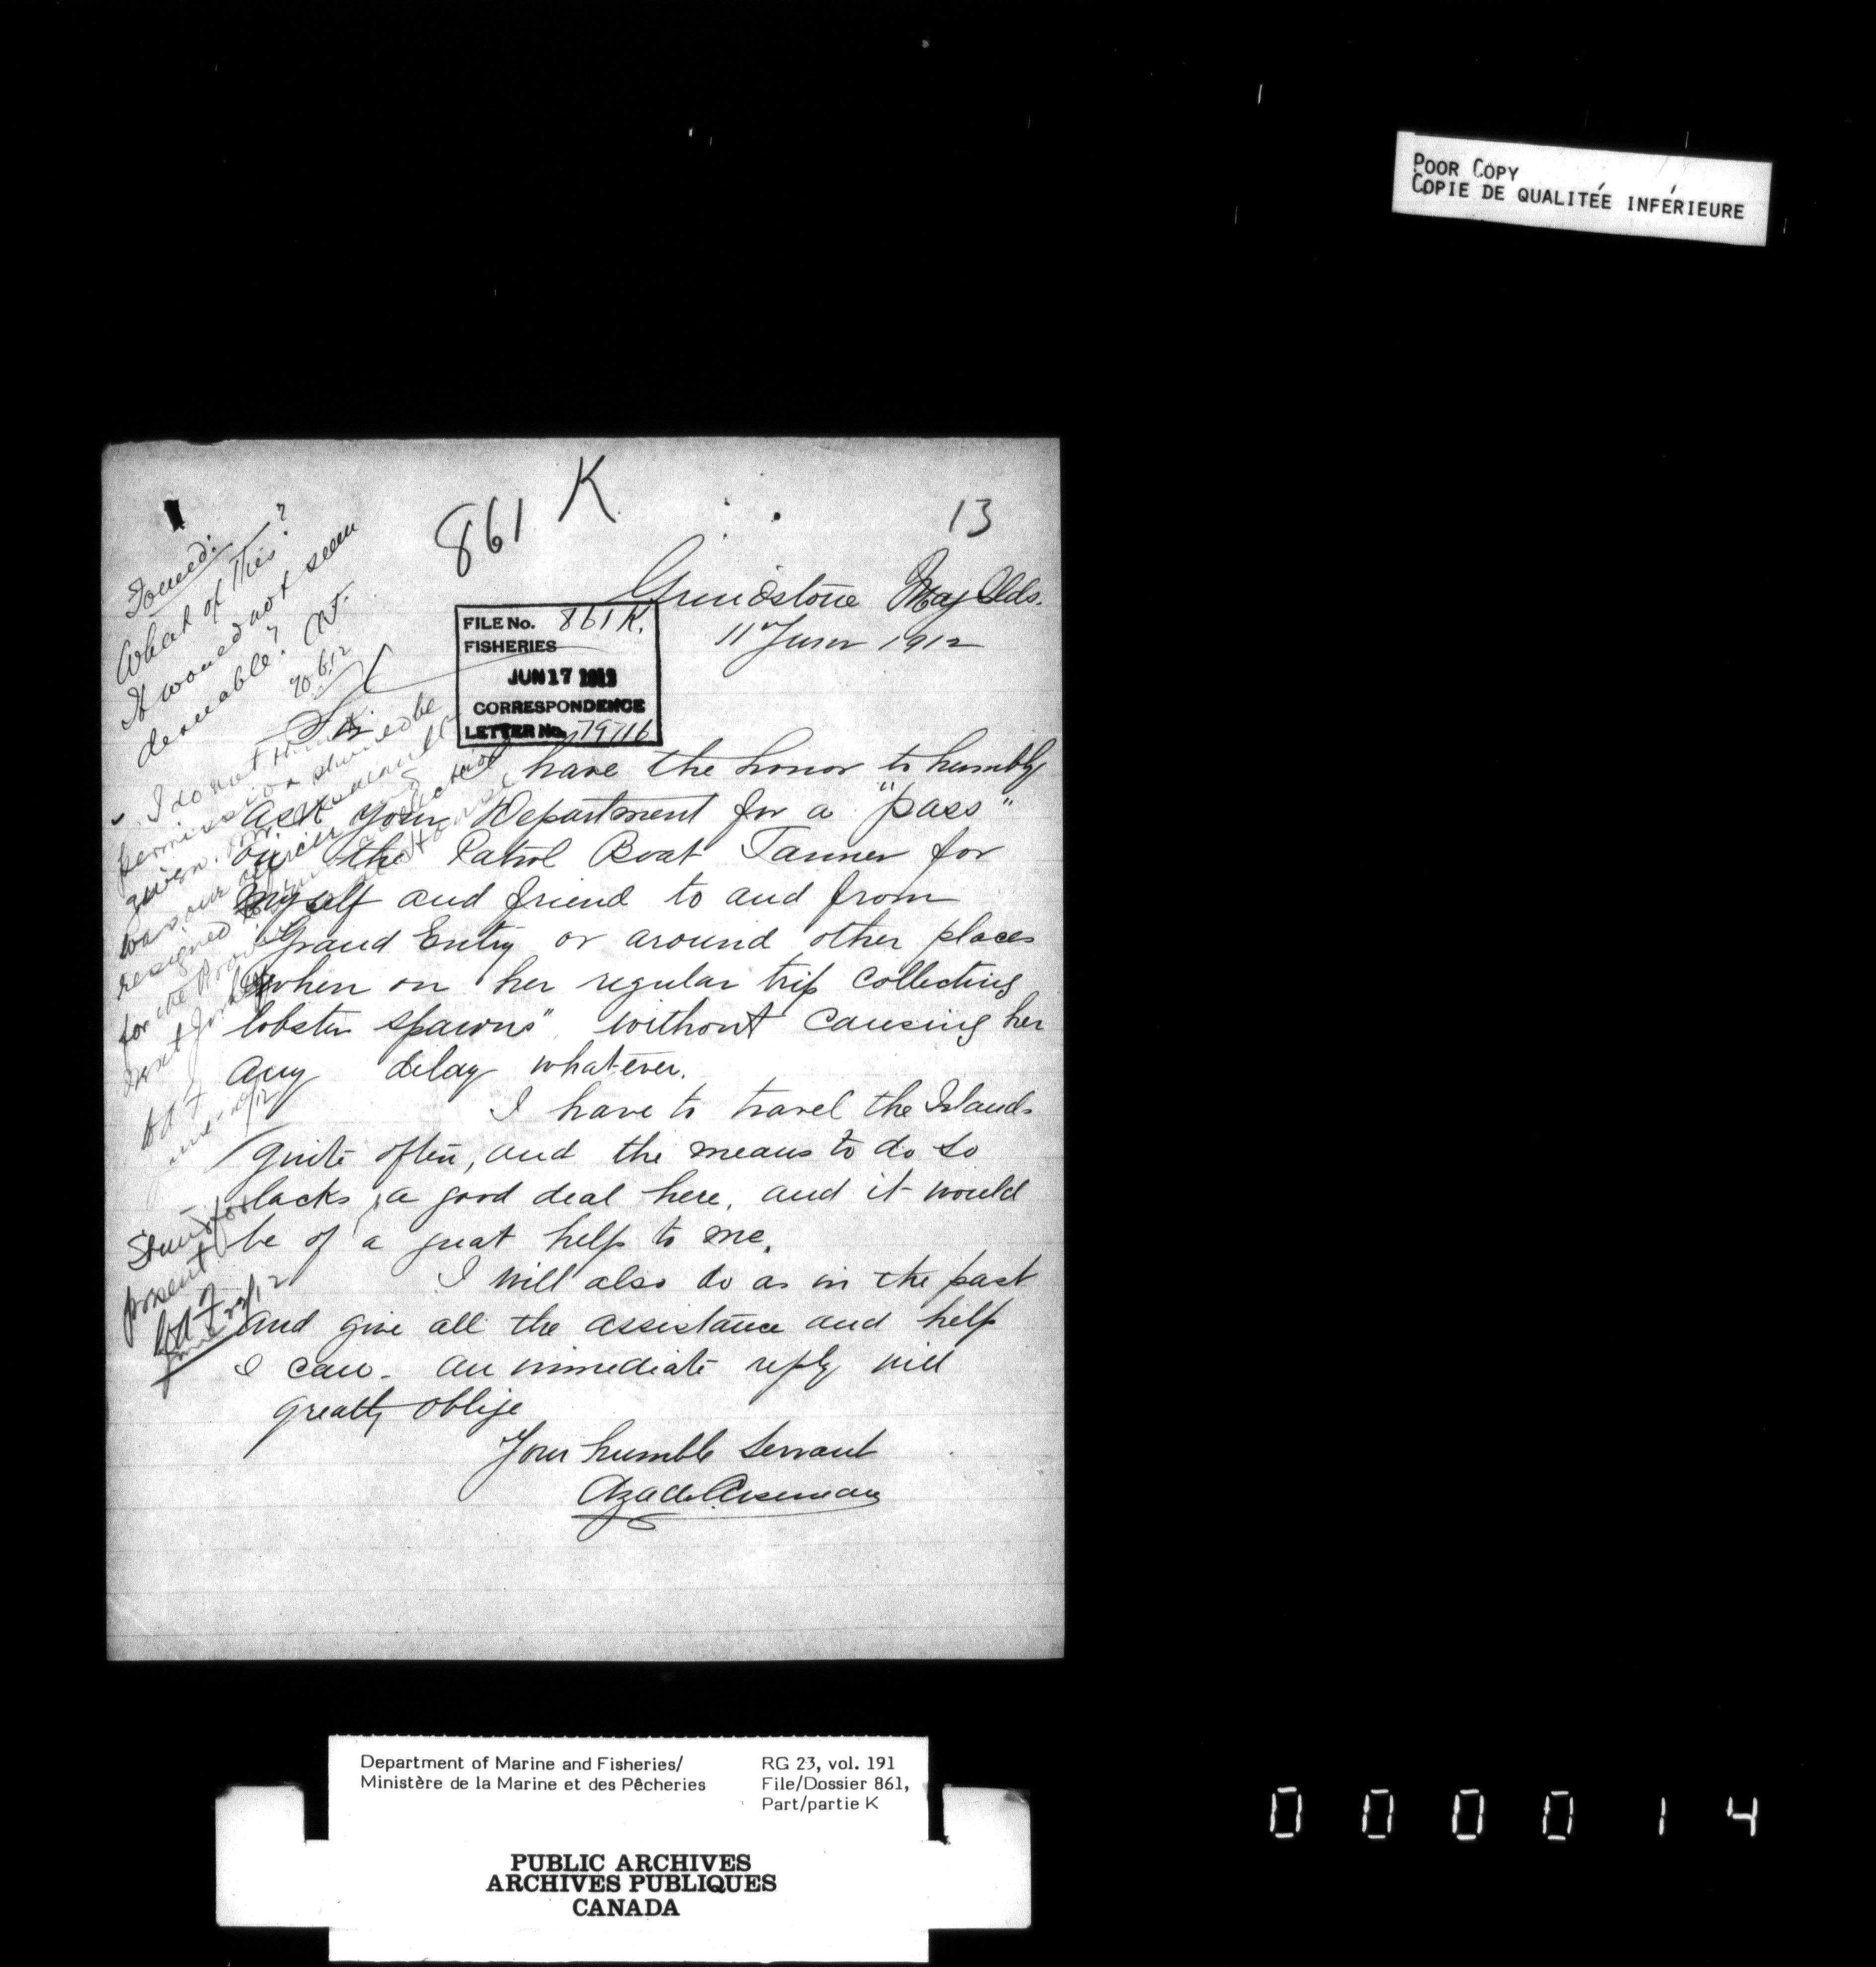 POOR COPY
COPIE DE QUALITÉE INFÉRIEURE
861 K
13
Grindstone Mag Slds.
11 June 1912
FILE No. 861 K.
FISHERIES
JUN 17 1912
CORRESPONDENCE
LETTER No. 79716
What of this?
It would not seem
desirable?
20.6.12
Sir
I have the honor to humbly
ask your Department for a "pass"
on the Patrol Boat Tanner for
myself and friend to and from
Grand Entry or around other places
when on her regular trip collecting
lobster spawns" without causing her
any delay whatever.
I have to travel the Islands
quite often, and the means to do so
lacks a good deal here, and it would
be of a great help to me.
I will also do as in the past
and give all the assistance and help
I can. an immediate reply will
greatly oblige
Your humble Servant
Azade Arseneau
I do not think
permission should be
given. Mr. Arseneault
was our officer
resigned
for the Provincial House
Stand for
present
Department of Marine and Fisheries/
Ministère de la Marine et des Pêcheries
RG 23, vol. 191
File/Dossier 861,
Part/partie K
PUBLIC ARCHIVES
ARCHIVES PUBLIQUES
CANADA
000014